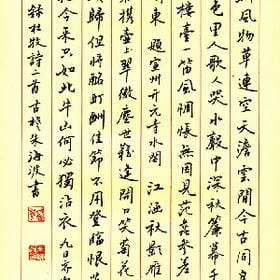 风物草連空天澹雲閒今古同
色里人歌人哭水聲中深秋簾幕千
樓臺一笛風惆悵無因見范蠡參差
東 題宣州開元寺水阁 江涵秋影雁
客携壶上翠微塵世難逢開口笑菊花
頭歸但將酩酊酬佳節不用登臨恨
今来只如此牛山何必獨沾衣 九日齐
杜牧詩二首 朱海波書